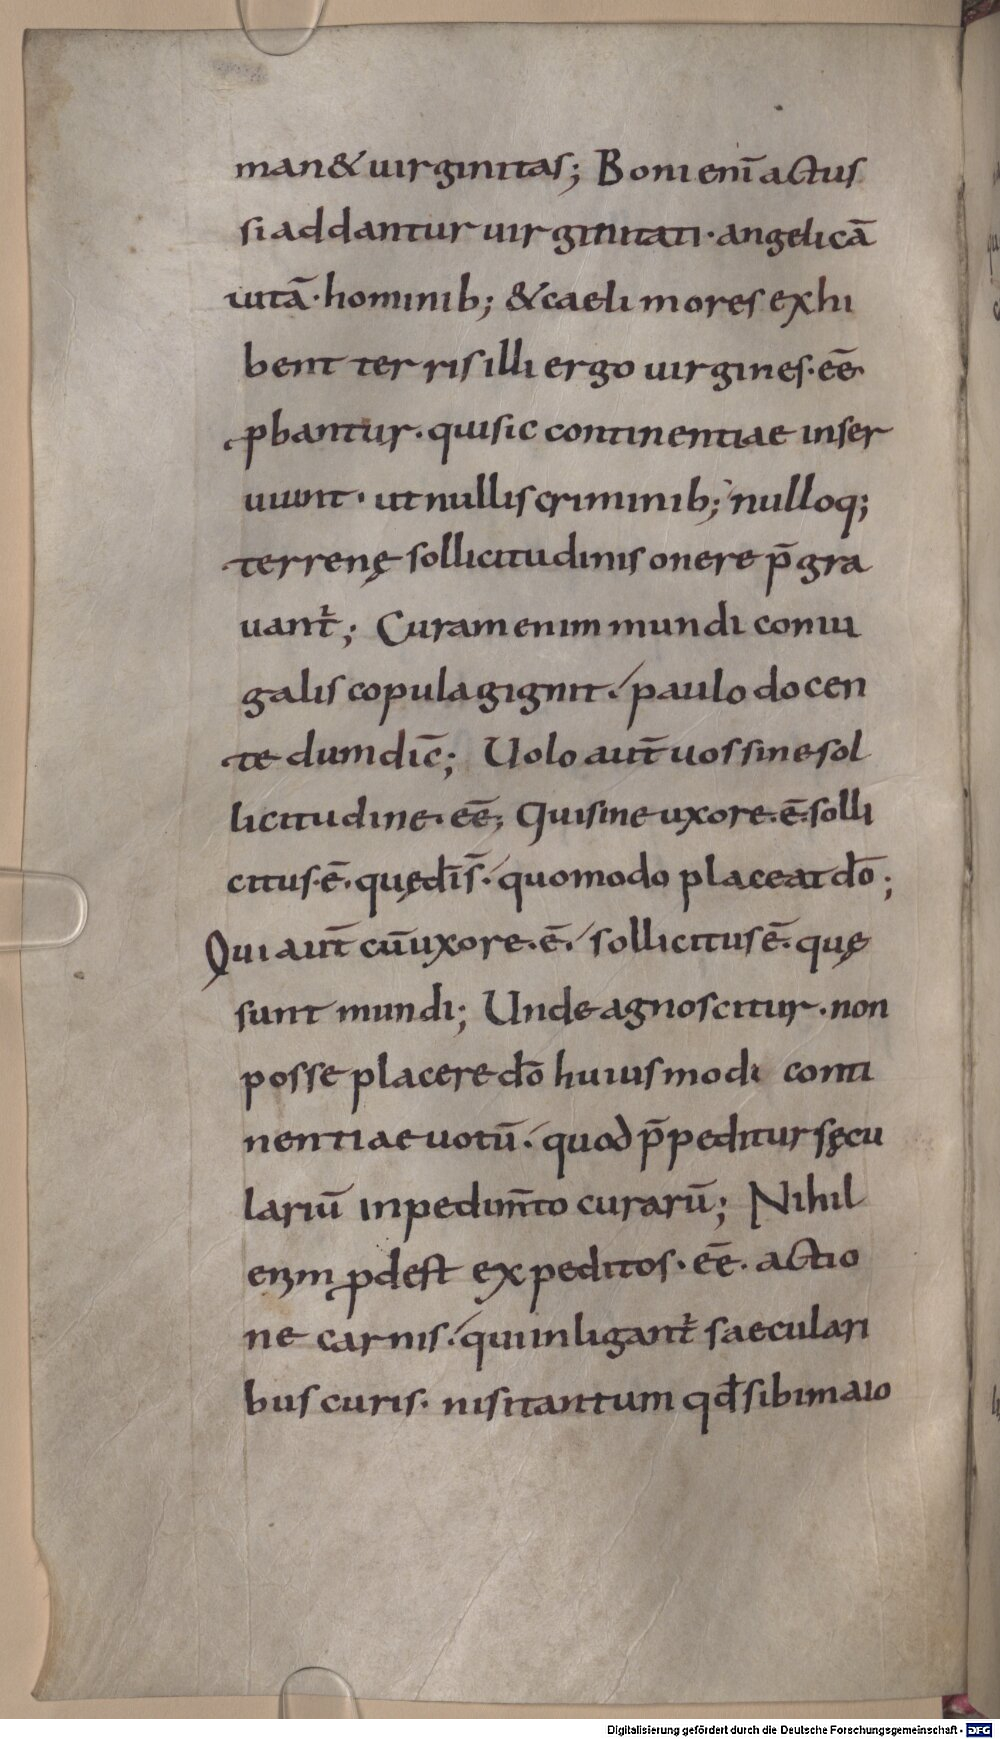 man& uirginitas; Boni enī actus
si addantur uirginitati · angelicā
uitā · hominib; &caeli mores exhi
bent terris illi ergo uirgines · eē ·
ꝓbantur · qui sic continentiae inser
uiunt · ut nullis criminib; nulloq;
terrenę sollicitudinis onere p̄gra
uant̄; Curam enim mundi coniu
galis copula gignit · paulo docen
te dum dic̄; Uolo aut̄ uos sine sol
licitudine · eē; Qui sine uxore · ē · solli
citus · ē · quę dīs̄ · quomodo placeat dō;
Qui aut̄ cū uxore · ē · sollicitus ē · quę
sunt mundi; Unde agnoscitur · non
posse placere dō huiusmodi conti
nentiae uotū · quod p̄peditur sęcu
lariū inpedim̄to curarū; Nihil
enim ꝓdest expeditos · eē · actio
ne carnis · qui inligant̄ saeculari
bus curis · nisi tantum qd̄ sibi maio
Digitalisierung gefördert durch die Deutsche Forschungsgemeinschaft - DFG